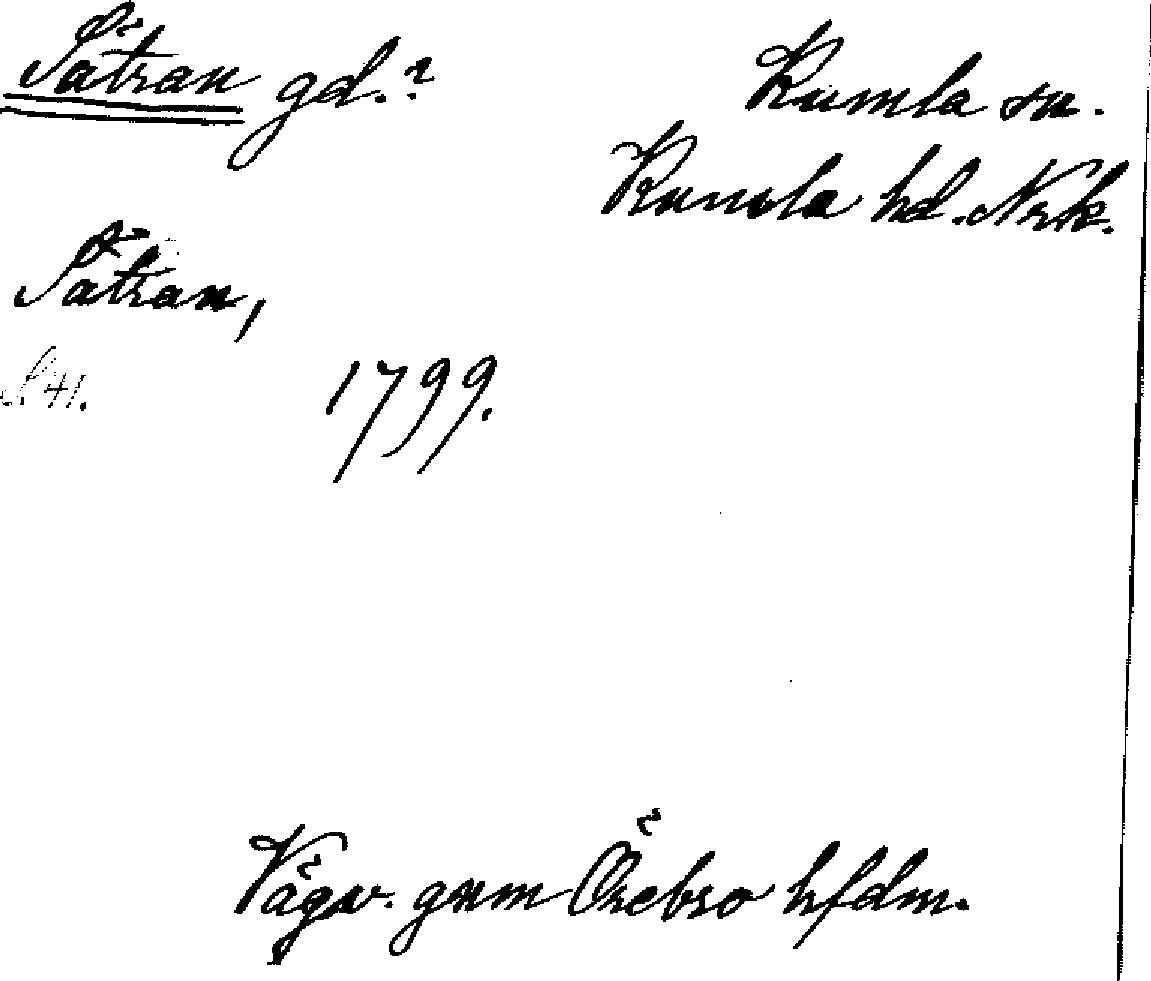 Sätran gd.?
Kumla sn.
Kumla hd. Nrk.
Sätran,
S. 41.
1799.
Vägv. gnm Örebro hfdm.